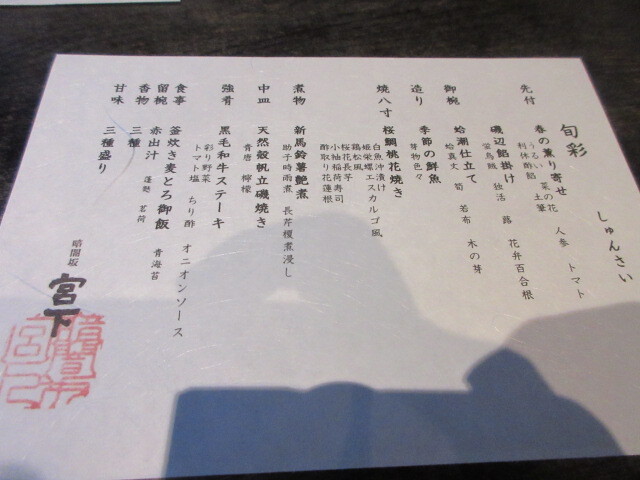 しゅんさい
旬彩
先付
春の薫り寄せ
うるい 菜の花 人参 トマト
利休酢餡 土筆
磯辺餡掛け
蛍烏賊 独活 蕗 花弁百合根
御椀
蛤潮仕立て
蛤真丈 筍 若布 木の芽
造り
季節の鮮魚
芽物色々
焼八寸
桜鯛桃花焼き
白魚沖漬け
姫栄螺エスカルゴ風
鶏松風
桜花長芋
小袖稲荷寿司
酢取り花蓮根
煮物
新馬鈴薯艶煮
助子時雨煮 長芹榎煮浸し
中皿
天然殻帆立磯焼き
青唐 檸檬
強肴
黒毛和牛ステーキ
彩り野菜
トマト塩 ちり酢 オニオンソース
食事
釜炊き麦とろ御飯
青海苔
留椀
赤出汁
蓬麩 茗荷
香物
三種
甘味
三種盛り
暗闇坂
宮下